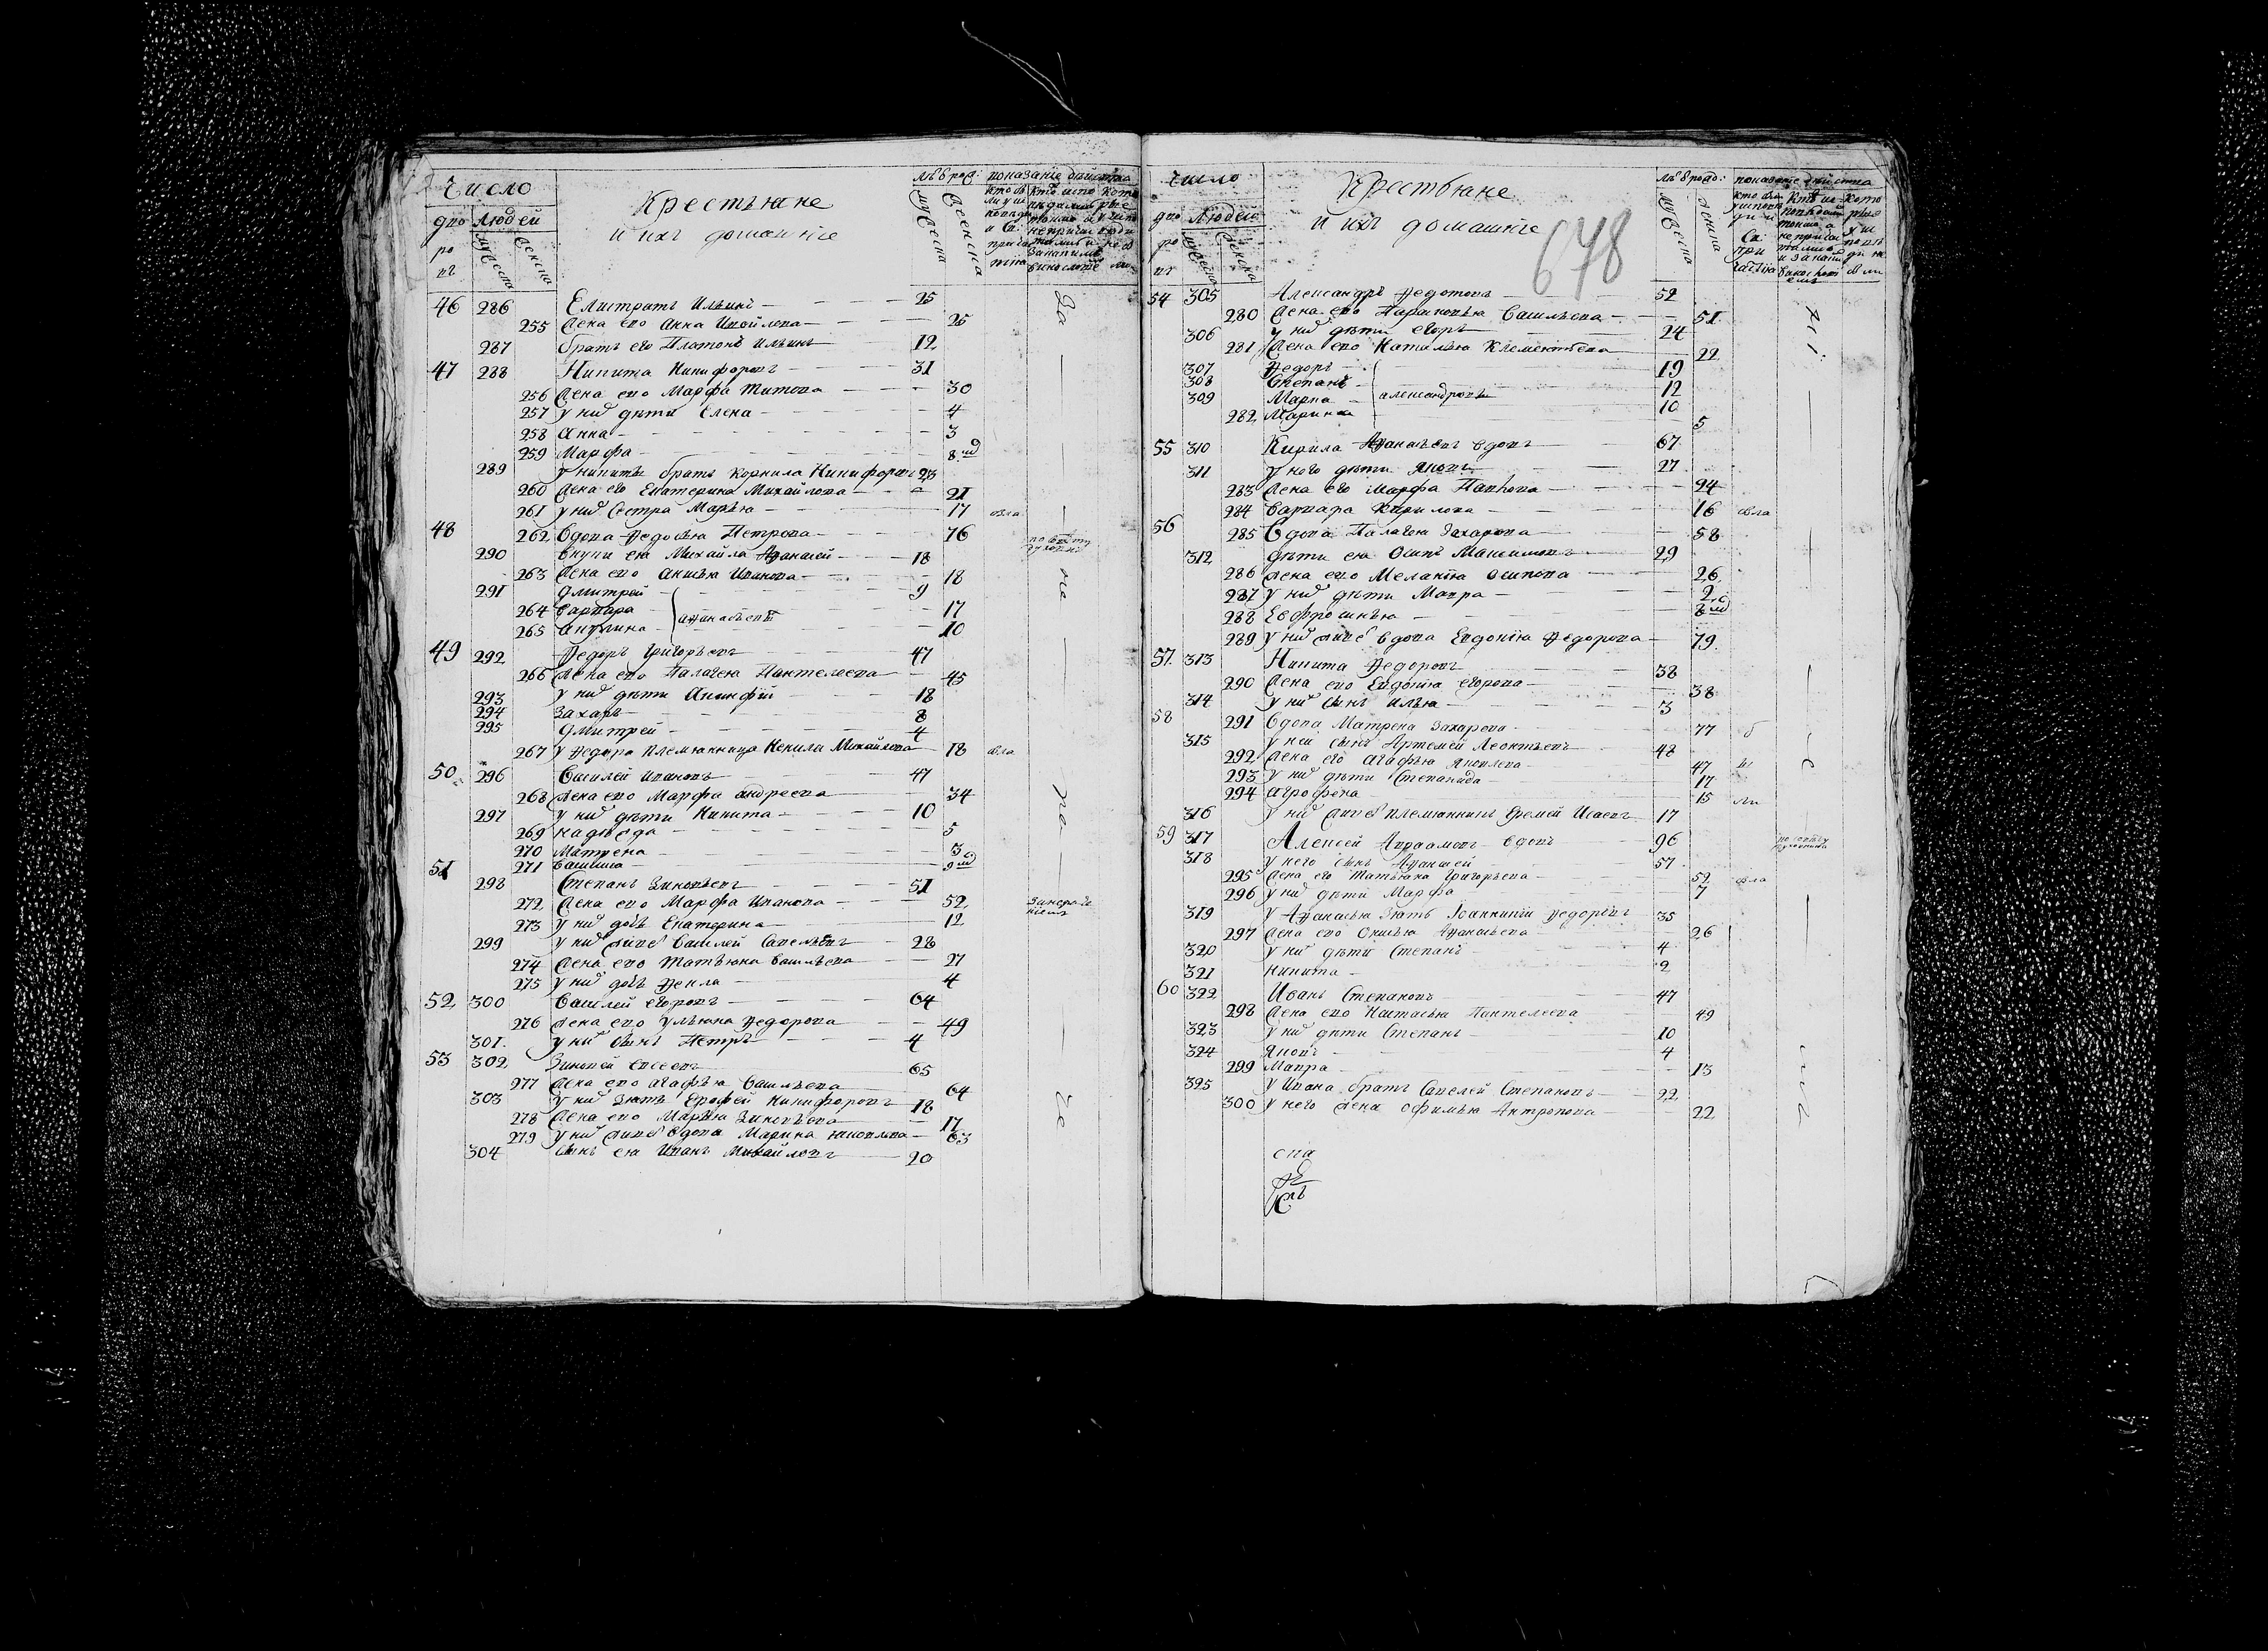 Число
дво ров
Людей
мужеска
женска
Крестьяне
и ихъ домашние
лѣ҇ѿ рож:
мужеска
женска
показание действа
46 286 Елистратъ Ильинъ 25
255 жена его Анна Иванова 25
287 братъ его Платонъ Ильинъ 12
47 288 Никита Никифоровъ 31
256 жена его Марфа Титова 30
257 у них дѣти Елена 4
258 Анна 3
259 Марфа 8 нд
289 у никиты братъ Корнила Никифоровъ 23
260 жена его Екатерина Михайлова 21
261 у них сестра Марья 17 была
48 262 Вдова Федосья Петрова 76
290 внуки ея Михайла Афанасей 18
263 жена его Анисья Иванова 18
291 Дмитрей 9
264 Варвара 17
Афанасьевы
265 Акулина 10
49 292 Федоръ Григорьевъ 47
266 жена его Палагея Пантелеева 45
293 у них дѣти Акинфiй 18
294 Захаръ 8
295 Дмитрей 4
267 у Федора племянница Ненила Михайлова 18 была
50 296 Василей Ивановъ 47
268 жена его Марфа Андреева 34
297 у них дѣти Никита 10
269 Надежда 5
270 Матрена 3
51 271 Василиса 9 нд
298 Степанъ Зиновьевъ 51
272 жена его Марфа Иванова 52
273 у них дочь Екатерина 12
299 у них же Василей Савельевъ 28
274 жена его Татьяна Васильева 27
275 у них дочь Фекла 4
52 300 Василей Егоровъ 64
276 жена его Ульяна Федорова 49
301 у них сынъ Петръ 4
53 302 Зиновей Евсеевъ 65
277 жена его Агафья Васильева 64
303 у них зять Ерофей Никифоровъ 18
278 жена его Марья Зиновьева 17
279 у них же вдова Марина Яковлева 63
304 сынъ ея Иванъ Михайловъ 20
Число
дво ров
Людей
мужеска
женска
Крестьяне
и ихъ домашние
678
мужеска
женска
показание действа
54 305 Александръ Федотовъ 52
280 жена его Парасковья Васильева 51
306 у них дѣти Егоръ 24
281 жена его Наталья Клементьева 22
307 Федоръ 19
308 Степанъ 12
309 Марка 10
Александровы
282 Марина 5
55 310 Кирила Афанасьевъ вдовъ 67
311 у него дѣти Яковъ 27
283 жена его Марфа Павлова 24
284 Варвара Кирилова 16 была
56 285 Вдова Палагея Захарова 58
312 дѣти ея Осипъ Максимовъ 29
286 жена его Меланiя Осипова 26
287 у них дѣти Мавра 2
288 Ефросинья 8 нд
289 у них же вдова Евдокiя Федорова 79
57 313 Никита Федоровъ 38
290 жена его Евдокiя Егорова 38
314 у них сынъ Илья 3
58 291 Вдова Матрена Захарова 77 б
315 у ней сынъ Артемей Леонтьевъ 48
292 жена его Агафья Яковлева 47 ы
293 у них дѣти Степанида 17
294 Агрофена 15 ли
316 у них же племянникъ Еремей Исаевъ 17
59 317 Алексей Авраамовъ вдовъ 96
318 у него сынъ Афанасей 57
295 жена его Татьяна Григорьева 52 была
296 у них дѣти Марфа 7
319 у Афанасья зять Iоанникiй Федоровъ 35
297 жена его Анисья Афанасьева 26
320 у них дѣти Степанъ 4
321 Никита 2
60 322 Иванъ Степановъ 47
298 жена его Настасья Пантелеева 49
323 у них дѣти Степанъ 10
324 Яковъ 4
299 Мавра 13
325 у Ивана братъ Савелей Степановъ 22
300 у него жена Офимья Антропова 22